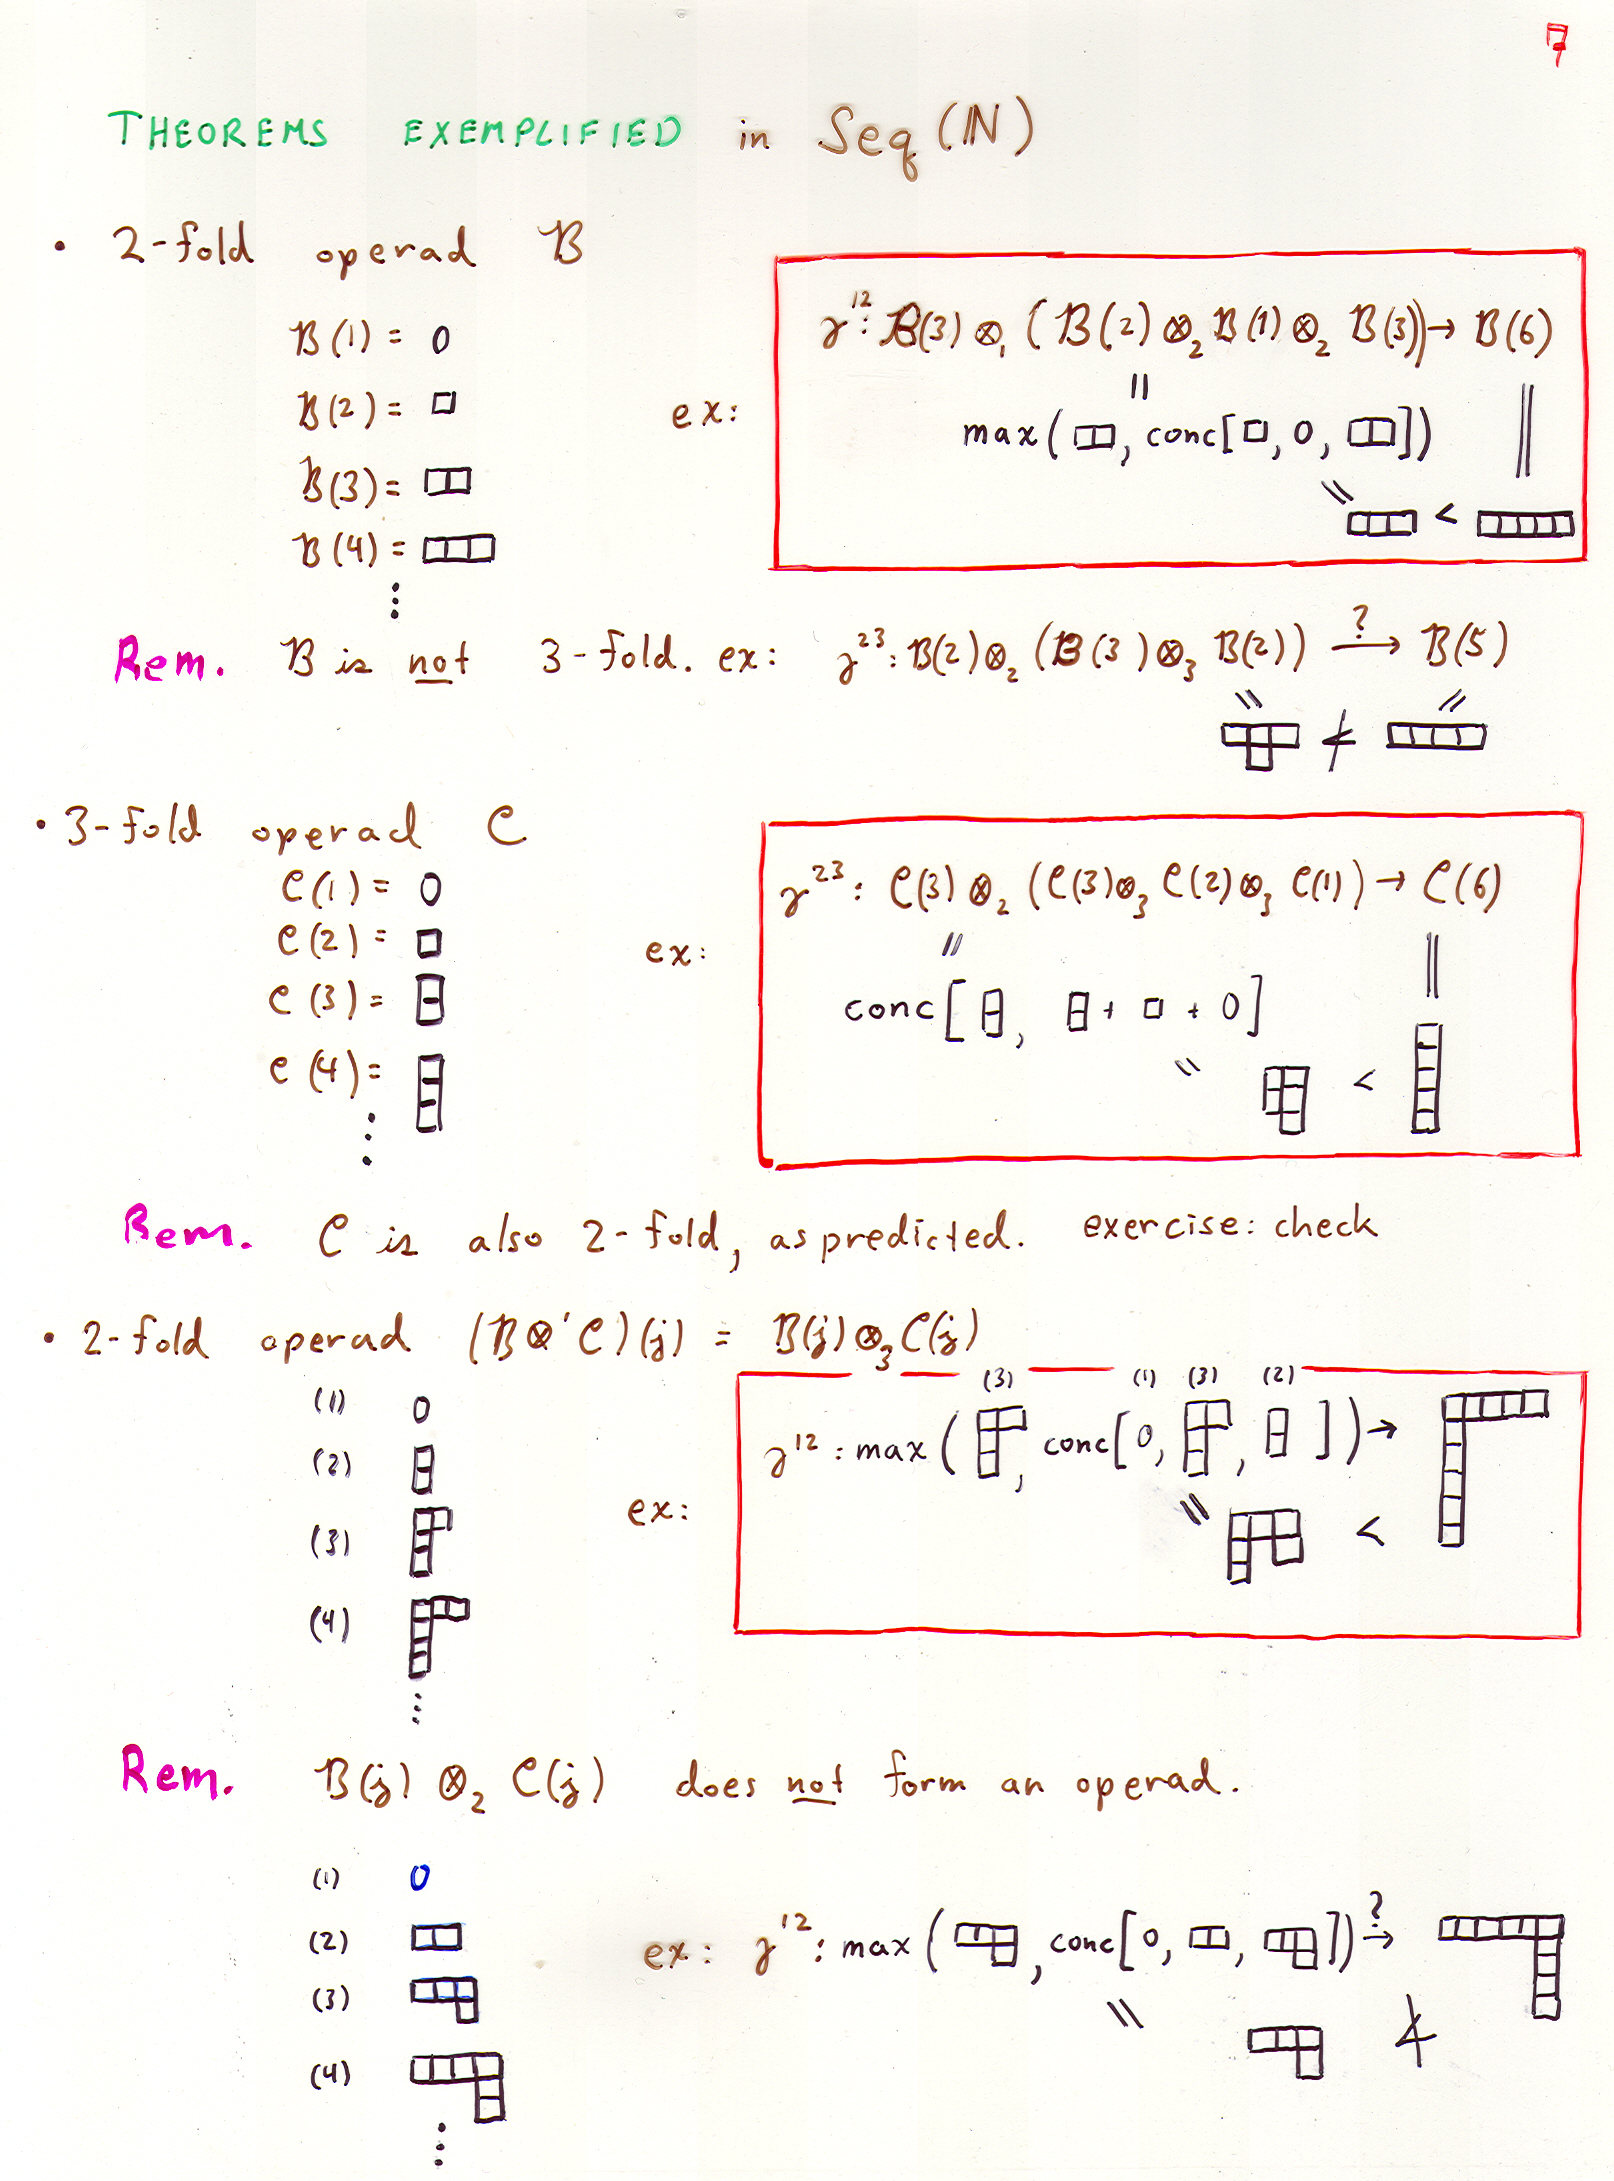 7
THEOREMS EXEMPLIFIED in Seq(ℕ)
• 2-fold operad B
B(1) = 0
B(2) = □
B(3) =
B(4) =
⋮
ex:
γ¹²: B(3) ⊗₁ (B(2) ⊗₂ B(1) ⊗₂ B(3)) → B(6)
max( , conc[□, 0, ])
<
Rem. B is not 3-fold. ex: γ²³: B(2) ⊗₂ (B(3) ⊗₃ B(2)) →? B(5)
≮
• 3-fold operad C
C(1) = 0
C(2) = □
C(3) =
C(4) =
⋮
ex:
γ²³: C(3) ⊗₂ (C(3) ⊗₃ C(2) ⊗₃ C(1)) → C(6)
conc[ , + □ + 0]
<
Rem. C is also 2-fold, as predicted. exercise: check
• 2-fold operad (B ⊗' C)(j) = B(j) ⊗₃ C(j)
(1) 0
(2)
(3)
(4)
⋮
ex:
(3) (1) (3) (2)
γ¹²: max( , conc[0, , ]) →
<
Rem. B(j) ⊗₂ C(j) does not form an operad.
(1) 0
(2)
(3)
(4)
⋮
ex: γ¹²: max( , conc[0, , ]) →?
≮